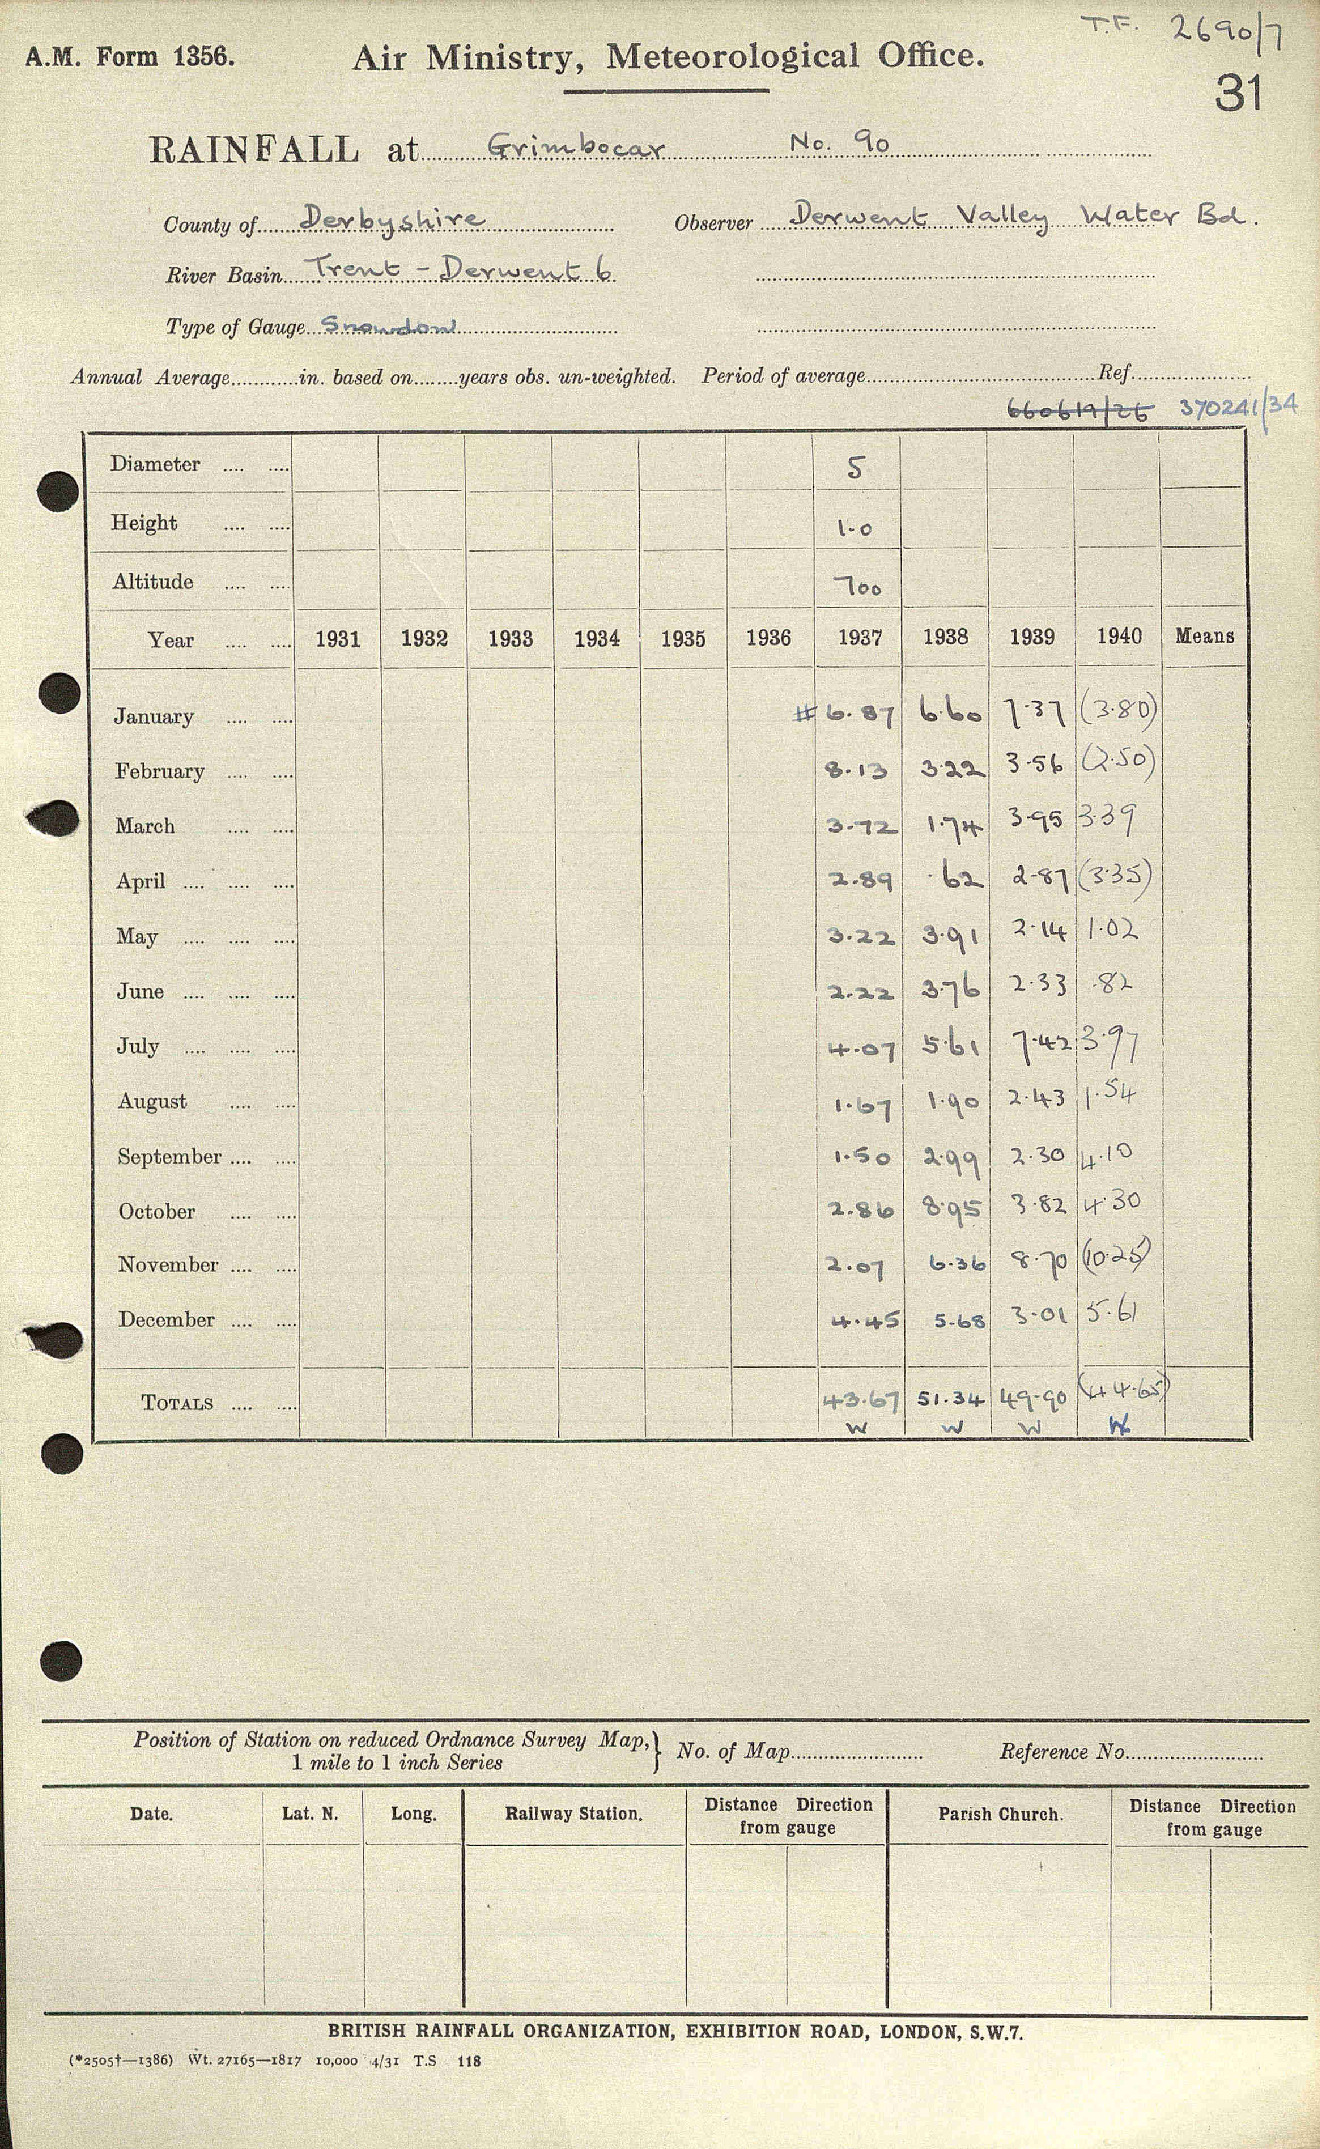 T.F. 2690/7
A.M. Form 1356. Air Ministry, Meteorological Office.
31
RAINFALL at Grimbocar No. 90
County of Derbyshire Observer Derwent Valley Water Bd.
River Basin Trent - Derwent 6
Type of Gauge Snowdon
Annual Average............in. based on........years obs. un-weighted. Period of average........................Ref.................
660619/26 370241/34
Diameter .... .... 5
Height .... .... 1.0
Altitude .... .... 700
Year .... .... 1931 1932 1933 1934 1935 1936 1937 1938 1939 1940 Means
January .... .... # 6.87 6.60 7.37 (3.80)
February .... .... 8.13 3.22 3.56 (2.50)
March .... .... 3.72 1.74 3.95 3.39
April .... .... .... 2.89 .62 2.87 (3.35)
May .... .... .... 3.22 3.91 2.14 1.02
June .... .... .... 2.22 3.76 2.33 .82
July .... .... .... 4.07 5.61 7.42 3.97
August .... .... 1.67 1.90 2.43 1.54
September .... .... 1.50 2.99 2.30 4.10
October .... .... 2.86 8.95 3.82 4.30
November .... .... 2.07 6.36 8.70 (10.25)
December .... .... 4.45 5.68 3.01 5.61
TOTALS .... .... 43.67 51.34 49.90 (44.65)
W W W W
Position of Station on reduced Ordnance Survey Map,} No. of Map........................ Reference No.........................
1 mile to 1 inch Series
Date. Lat. N. Long. Railway Station. Distance Direction from gauge Parish Church. Distance Direction from gauge
BRITISH RAINFALL ORGANIZATION, EXHIBITION ROAD, LONDON, S.W.7.
(*2505†—1386) Wt. 27165—1817 10,000 4/31 T.S 118